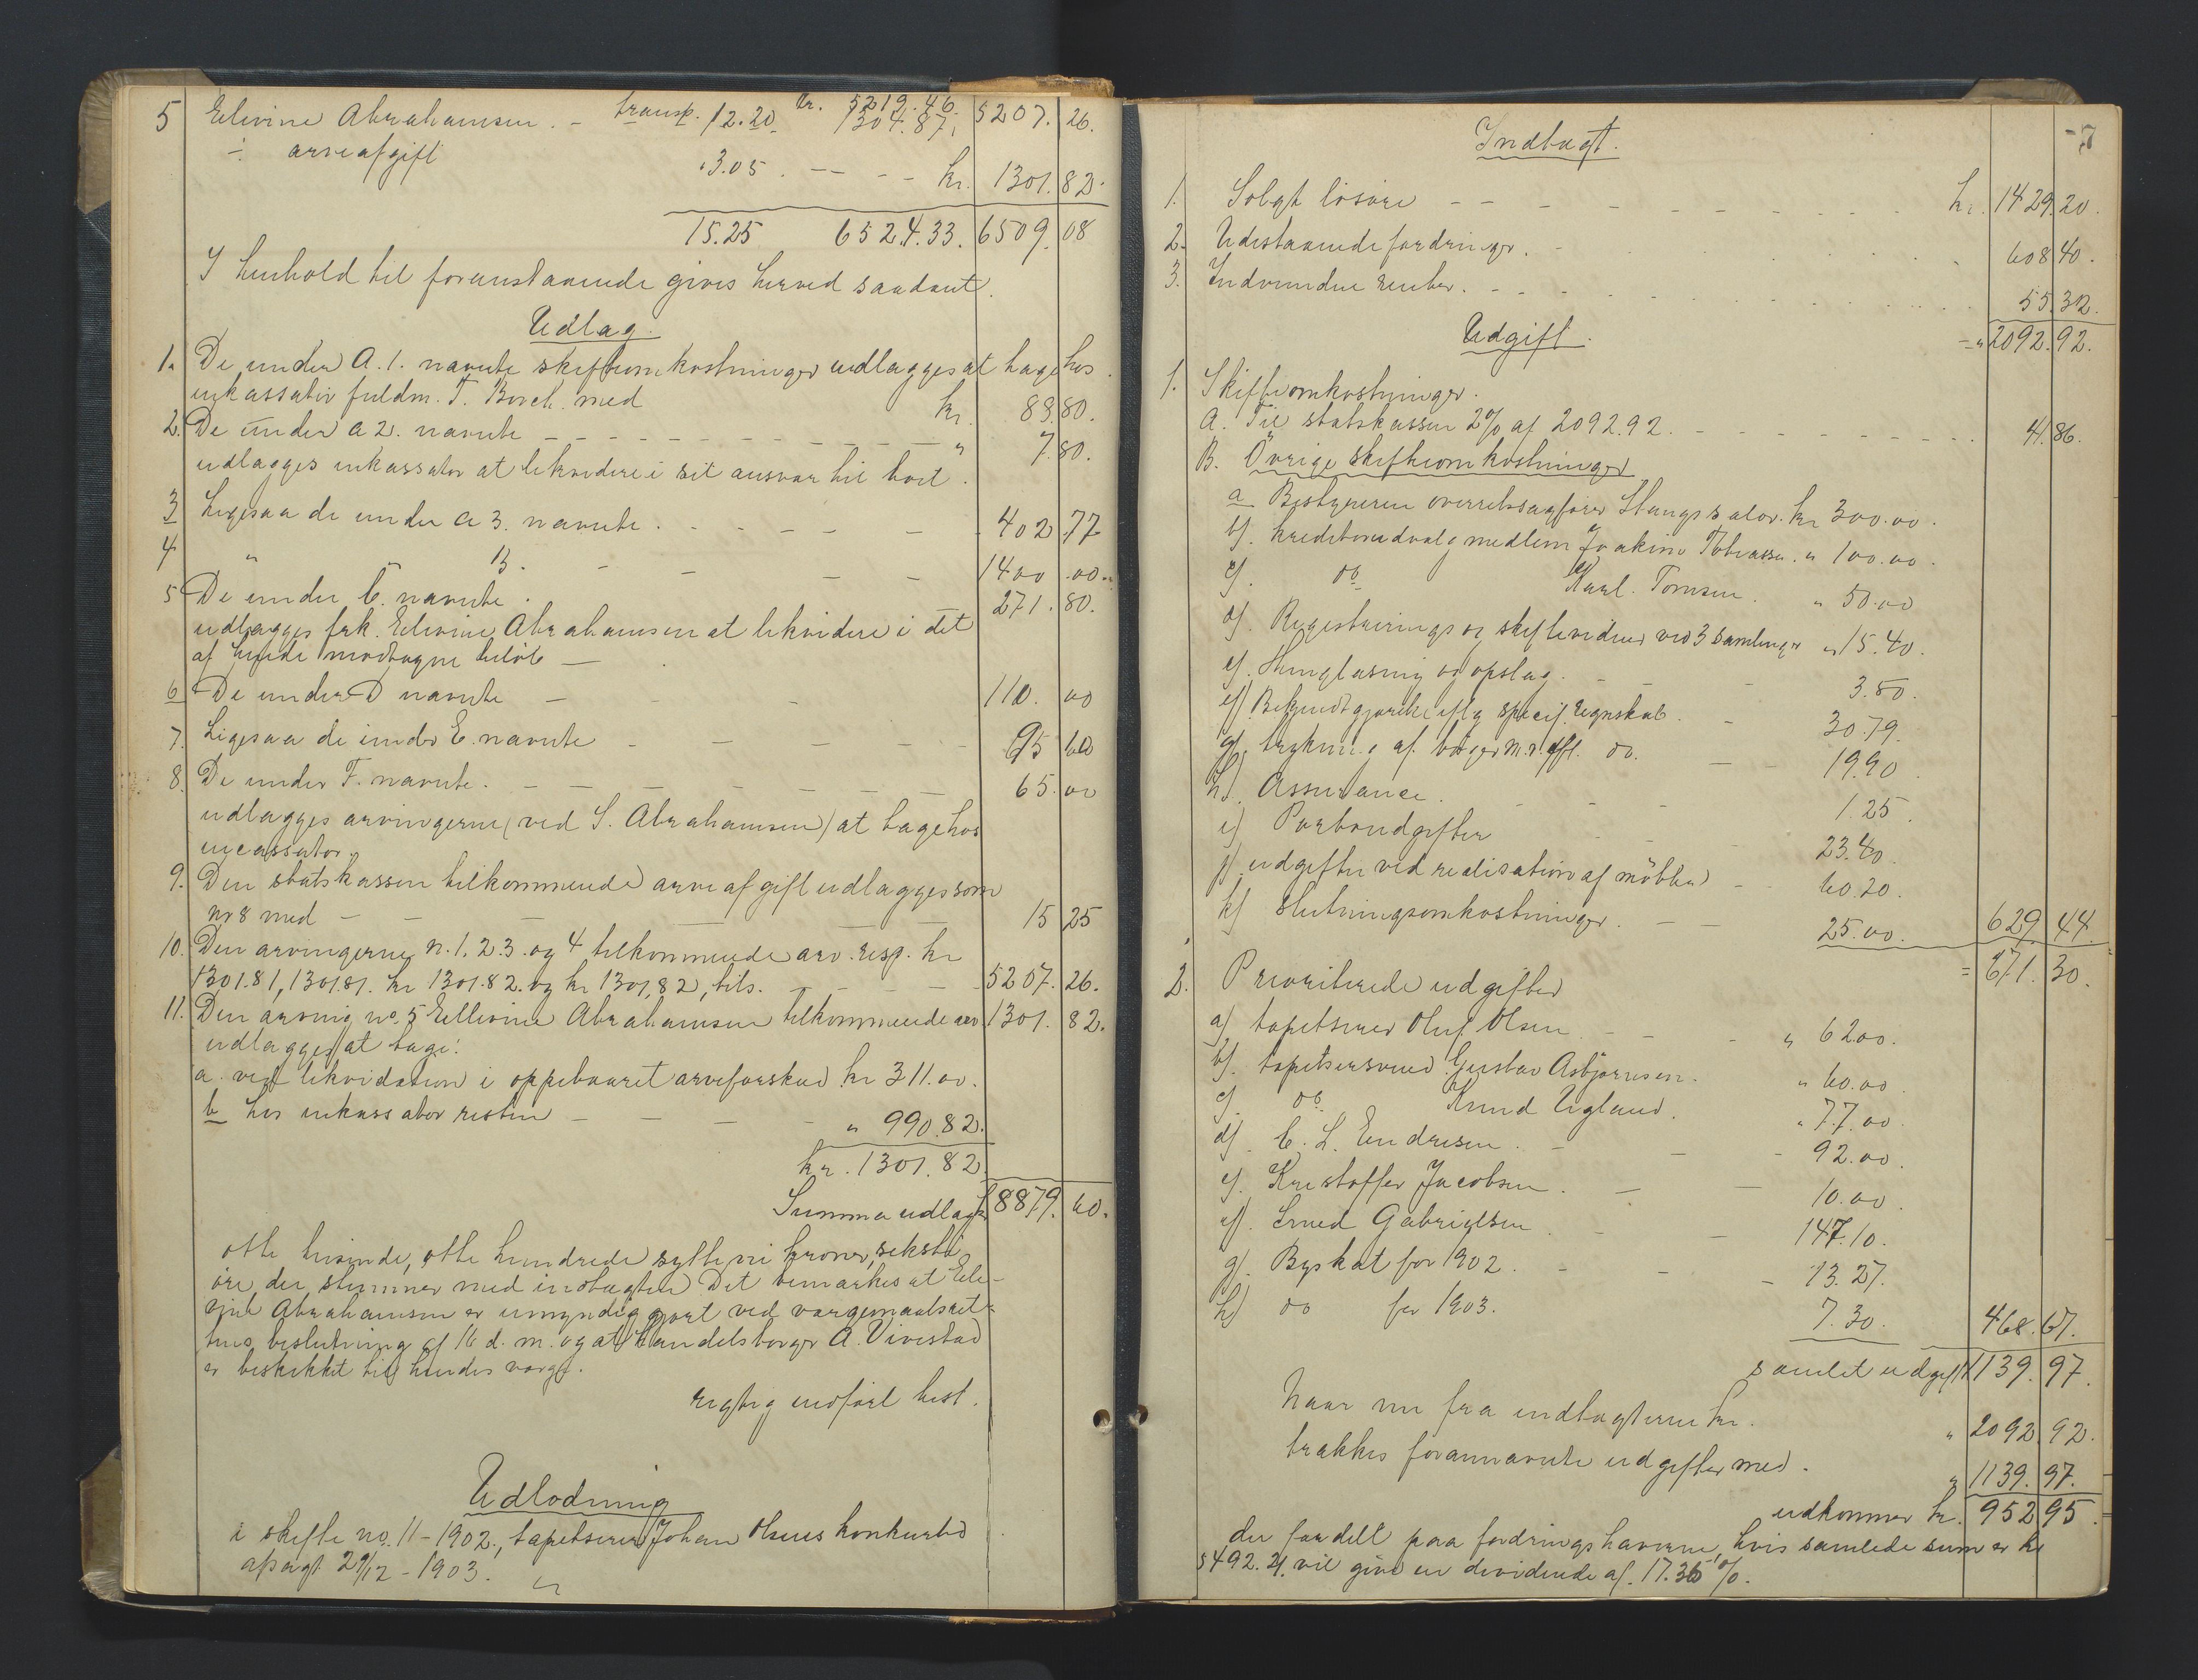 5 Elevine Abrahamsen. – transp. 12.20 kr. 5219.46. 5207.26.
÷ arveafgift 1304.87,
3.05. – – – – kr. 1301.82.
15.25 6524.33. 6509.08
I henhold til foranstaaende gives herved saadant.
Udlag.
1. De under A.1. nævnte skifteomkostninger udlægges at tage hos
inkassator fuldm. T. Borch. med kr. 89.80.
2. De under A 2. nævnte – – – – " 7.80.
udlægges inkassator at likvidere i sit ansvar til boet.
3 Ligesaa de under A 3. nævnte. – – – 402.77
4 " B. – – – – 1400.00.
5 De under C. nævnte. 271.80.
udlægges frk. Elevine Abrahamsen at likvidere i det
af hende modtagne beløb –
6 De under D nævnte – – – 110.00
7. Ligesaa de under E. nævnte – – – – – 95 60
8. De under F. nævnte. – – – – – – 65.00
udlægges arvingerne (ved S. Abrahamsen) at tage hos
incassator.
9. Den statskassen tilkommende arveafgift udlægges som
nr 8 med – – – – 15 25
10. Den arvingerne N. 1. 2. 3. og 4 tilkommende arv. resp. kr
1301.81, 1301.81. kr 1301.82. og kr 1301,82, tils. – – – – 5207.26.
11. Den arving no. 5 Ellevine Abrahamsen tilkommende arv 1301.82.
udlægges at tage:
a. ved likvidation i oppebaaret arveforskud kr 311.00.
b hos inkassator resten – – – " 990.82.
kr. 1301.82.
Summa udlagt 8879.60.
otte tusinde, otte hundrede sytti ni kroner, seksti
øre der stemmer med indtægten. Det bemærkes at Ele-
vine Abrahamsen er umyndiggjort ved vergemaalsret-
tens beslutning af 16 d. m. og at handelsborger A. Vivestad
er beskikket til hendes verge.
rigtig indført best.
Udlodning
i skifte no. 11 – 1902., tapetserer Johan Olsens konkursbo
afsagt 29/12 – 1903.
7
Indtægt.
1. Solgt løsøre – – – – – – kr. 1429.20.
2. Udestaaende fordringer. – 608 40.
3. Indvundne renter. – – – 55.32.
Udgift. – " 2092.92.
1. Skifteomkostninger.
A. Til statskassen 2% af 2092.92. – – – – 41.86.
B. Øvrige skifteomkostninger
a Bestyreren overretssagfører Stangs salær. kr 300.00.
b). kreditorudvalg medlem Joakim Tobiassen. " 100.00.
c). do Karl. Tomsen. " 50.00
d). Registrerings og skiftevidner ved 3 samlinger " 15.40.
e). Thinglæsning og opslag. – – 3.50.
f). Bekjendtgjørelse iflg specif. regnskab. – 30.79.
g). trykning af bøger m. v. iflg. do. – – 19.90.
h). Assurance. – – – 1.25.
i) Portoudgifter – – 23.40.
j) udgifter ved realisation af møbler – 60.20.
k) Slutningsomkostninger. – – 25.00. 629.44.
= 671.30.
2. Prioriterede udgifter
a) tapetserer Oluf Olsen – – – " 62.00.
b). tapetsersvend Gustav Asbjørnsen. " 60.00.
c). do Knud Ugland. " 77.00
d). C. L. Endresen. – – – 92.00.
e). Kristoffer Jacobsen. – – 10.00.
f). Erned Gabrielsen – – 147.10.
g). Byskat for 1902. – – – 13.27.
h) do for 1903. 7.30. 468.67.
samlet udgift 1139.97.
Naar nu fra indtægterne kr. " 2092.92.
trækkes forannævnte udgifter med. " 1139.97.
udkommer kr. 952 95.
der fordelt paa fordringshaverne, hvis samlede sum er kr
5492.21. vil give en dividende af. 17.35 %.